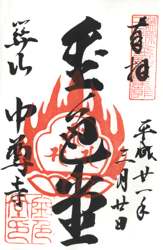 奉拝
平成廿一年
三月廿日
金色堂
関山
中尊寺